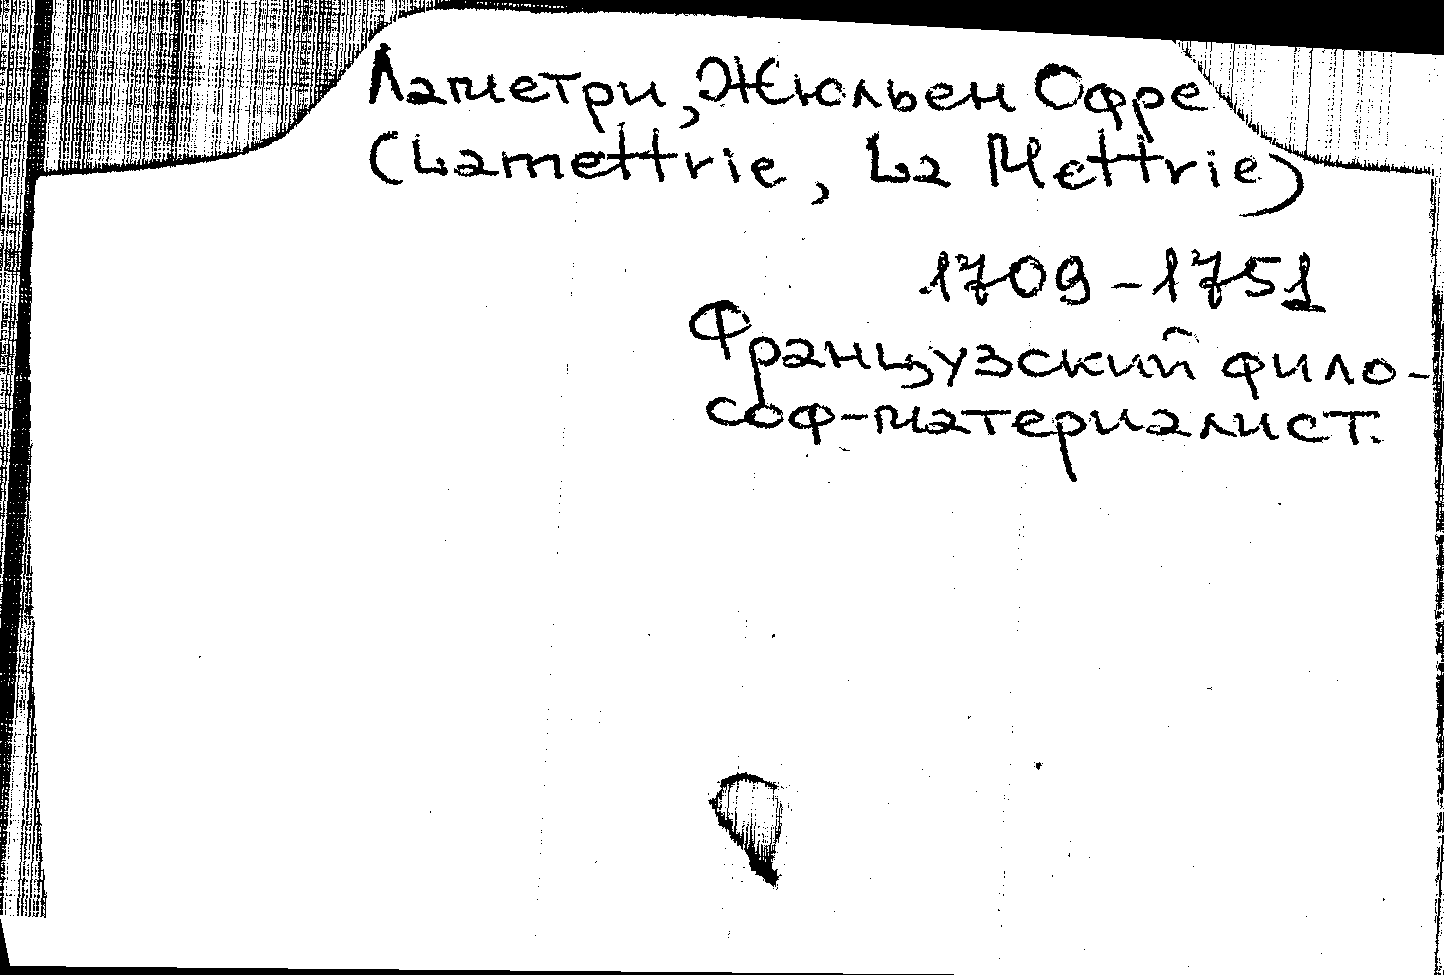 Ламетри, Жюльен Офре
(Lamettrie, La Mettrie)
1709-1751
Французский фило-
соф-материалист.